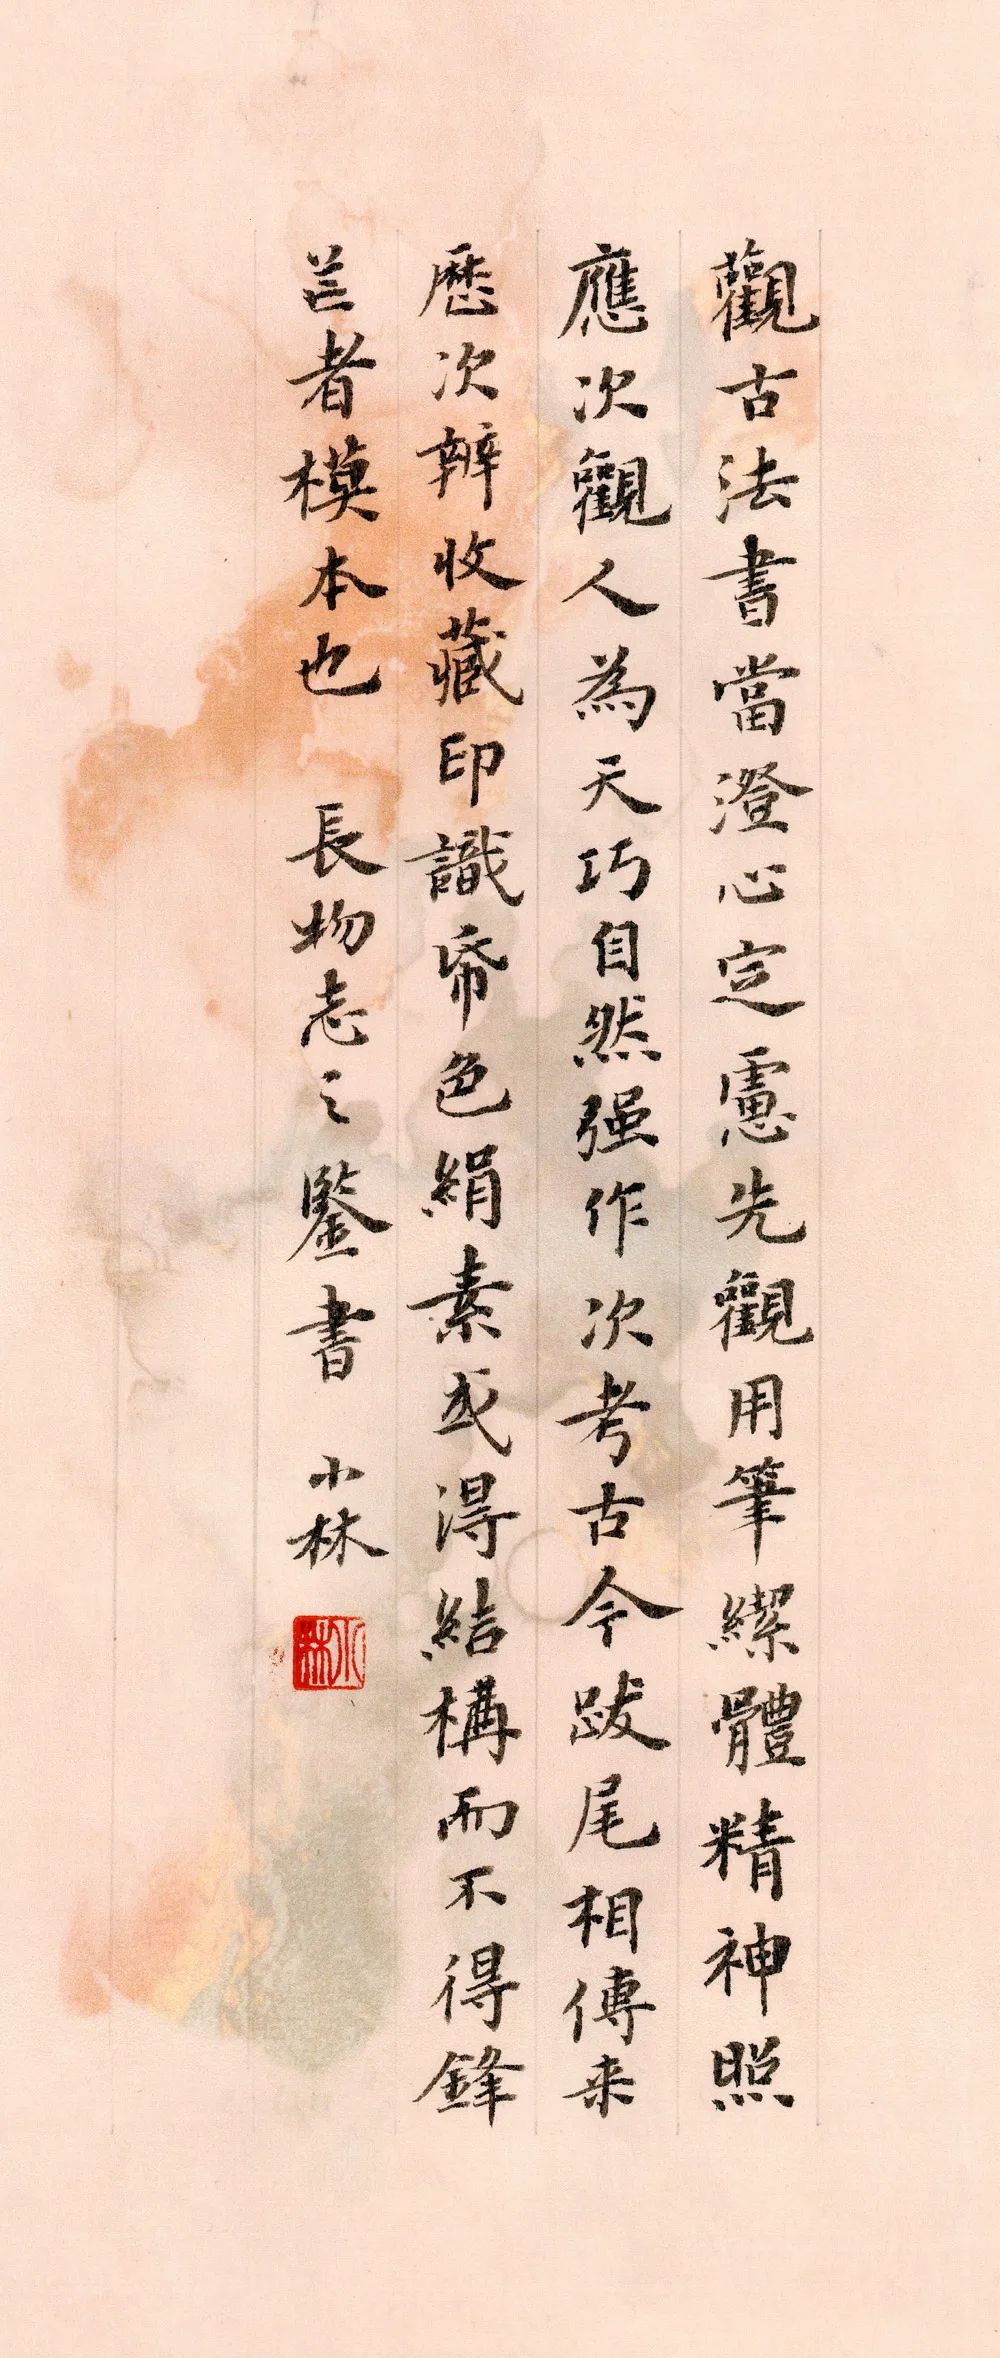 觀古法書當澄心定慮先觀用筆結體精神照
應次觀人為天巧自然强作次考古今跋尾相傳来
歷次辨收藏印識帋色絹素或得結構而不得鋒
芒者模本也 長物志之鑒書 小林
小林